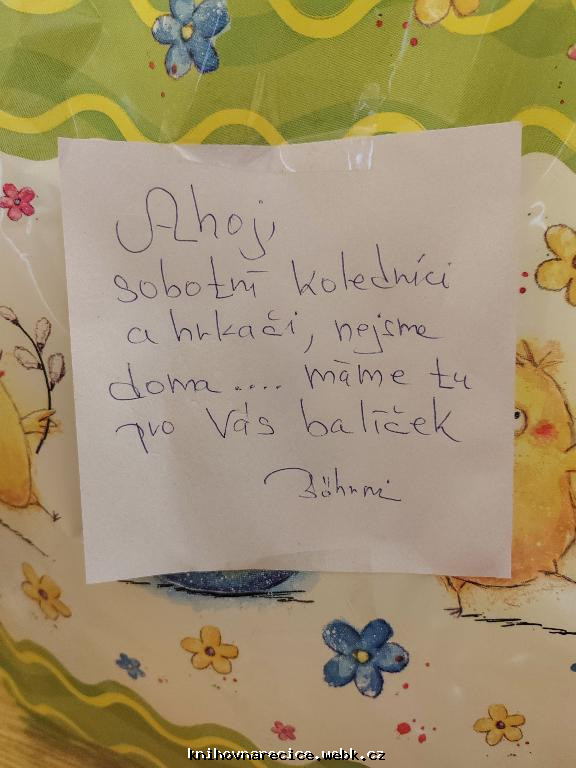 Ahoj,
sobotní koledníci
a hrkači, nejsme
doma.... máme tu
pro Vás balíček
knihovnarecice.webk.cz